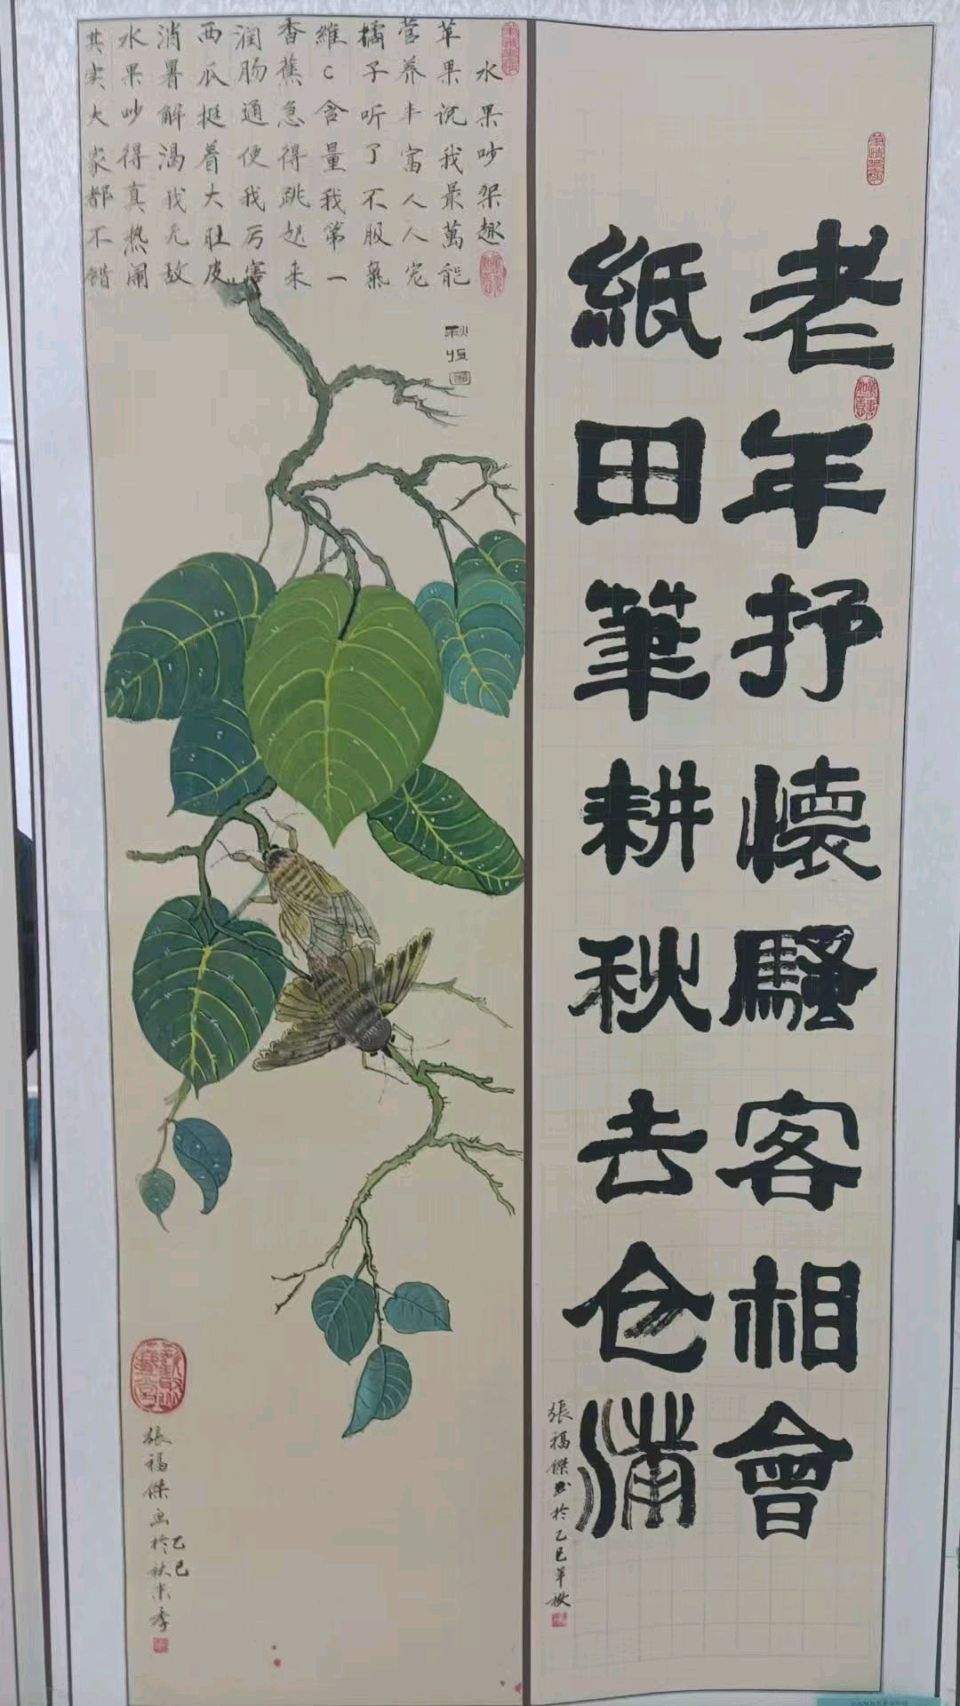 老年抒懷騷客相會
紙田筆耕秋去仓满
張福傑书於乙巳年秋
水果吵架趣
苹果说我最萬能
营养丰富人人宠
橘子听了不服氣
維c含量我第一
香蕉急得跳起来
润肠通便我厉害
西瓜挺着大肚皮
消暑解渴我无敌
水果吵得真热闹
其实大家都不错
秋恒
張福傑画於秋末季
乙巳